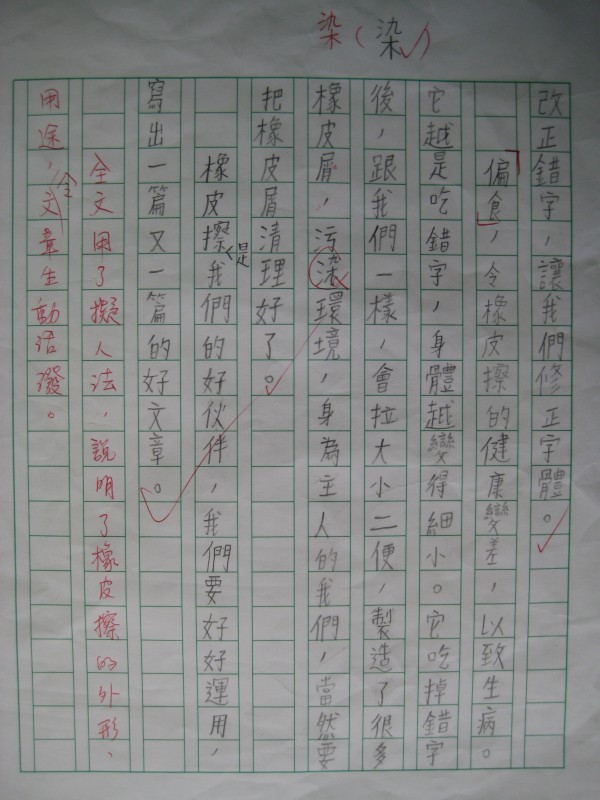 染（染）
改正錯字，讓我們修正字體。
偏食，令橡皮擦的健康變差，以致生病。
它越是吃錯字，身體越變得細小。它吃掉錯字
後，跟我們一樣，會拉大小二便，製造了很多
橡皮屑，污染環境，身為主人的我們，當然要
把橡皮屑清理好了。
橡皮擦是我們的好伙伴，我們要好好運用，
寫出一篇又一篇的好文章。
全文用了擬人法，說明了橡皮擦的外形、
用途，令文章生動活潑。